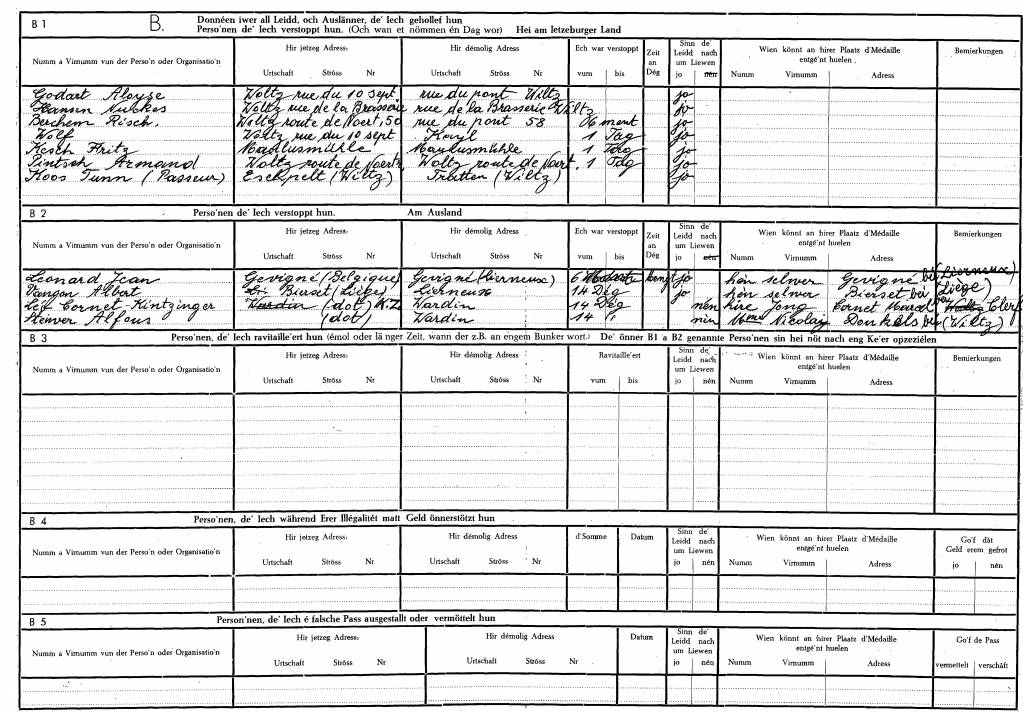 B 1 B. Donnéen iwer all Leidd, och Auslänner, de' Iech gehollef hun
Perso'nen de' Iech verstoppt hun. (Och wan et nömmen én Dag wor) Hei am letzeburger Land
Numm a Virnumm vun der Perso'n oder Organisatio'n Hir jetzeg Adress: Urtschaft Ströss Nr Hir démolig Adress Urtschaft Ströss Nr Ech war verstoppt vum bis Zeit an Dég Sinn de' Leidd nach um Liewen jo nén Wien könnt an hirer Plaatz d'Médaille entgé'nt huelen. Numm Virnumm Adress Bemierkungen
Godart Aloyse Woltz rue du 10 sept. rue du pont Wiltz jo
Hansen Nuckes Woltz rue de la Brasserie rue de la Brasserie Wiltz jo
Berchem Risch. Woltz route de Noert, 50 rue du pont 58 06 ment jo
Wolf Woltz rue du 10 sept Kayl 1 Tag jo
Kesch Fritz Maulusmühle Maulusmühle 1 Tag jo
Pintsch Armand Woltz route de Noert, Woltz route de Noert. 1 Tag jo
Koos Tunn (Passeur) Eschpelt (Wiltz) (Wiltz) jo
B 2 Perso'nen de' Iech verstoppt hun. Am Ausland
Numm a Virnumm vun der Perso'n oder Organisatio'n Hir jetzeg Adress: Urtschaft Ströss Nr Hir démolig Adress: Urtschaft Ströss Nr Ech war verstoppt vum bis Zeit an Dég Sinn de' Leidd nach um Liewen jo nén Wien könnt an hirer Plaatz d'Médaille entgé'nt huelen Numm Virnumm Adress Bemierkungen
Leonard Jean Gevigné (Belgique) Gevigné (Lierneux) 6 jo hén selwer Gevigné bei (Lierneux)
Vangon Albert Bierset (Liège) Lierneux 14 Dég jo hén selwer Bierset bei (Liège)
Cornet Kintzinger Wardin (dot) K.Z. Wardin 14 Dég nén hire Jong Cornet Clerf
Steiwer Alfons (dot) Wardin 14 " nén Nicolay Donkols bei (Wiltz)
B 3 Perso'nen, de' Iech ravitaille'ert hun (émol oder länger Zeit, wann der z.B. an engem Bunker wort.) De' önner B1 a B2 genannte Perso'nen sin hei nöt nach eng Ke'er opzeziélen
Numm a Virnumm vun der Perso'n oder Organisatio'n Hir jetzeg Adress: Urtschaft Ströss Nr Hir démolig Adress: Urtschaft Ströss Nr Ravitaille'ert vum bis Sinn de' Leidd nach um Liewen jo nén Wien könnt an hirer Plaatz d'Médaille entgé'nt huelen Numm Virnumm Adress Bemierkungen
B 4 Perso'nen, de' Iech während Erer Illégalitét matt Geld önnerstötzt hun
Numm a Virnumm vun der Perso'n oder Organisatio'n Hir jetzeg Adress: Urtschaft Ströss Nr Hir démolig Adress: Urtschaft Ströss Nr d'Somme Datum Sinn de' Leidd nach um Liewen jo nén Wien könnt an hirer Plaatz d'Médaille entgé'nt huelen Numm Virnumm Adress Go'f dât Geld erem gefrot jo nén
B 5 Person'nen, de' Iech é falsche Pass ausgestallt oder vermöttelt hun
Numm a Virnumm vun der Perso'n oder Organisatio'n Hir jetzeg Adress: Urtschaft Ströss Nr Hir démolig Adress: Urtschaft Ströss Nr Datum Sinn de' Leidd nach um Liewen jo nén Wien könnt an hirer Plaatz d'Médaille entgé'nt huelen Numm Virnumm Adress Go'f de Pass vermettelt verschâft